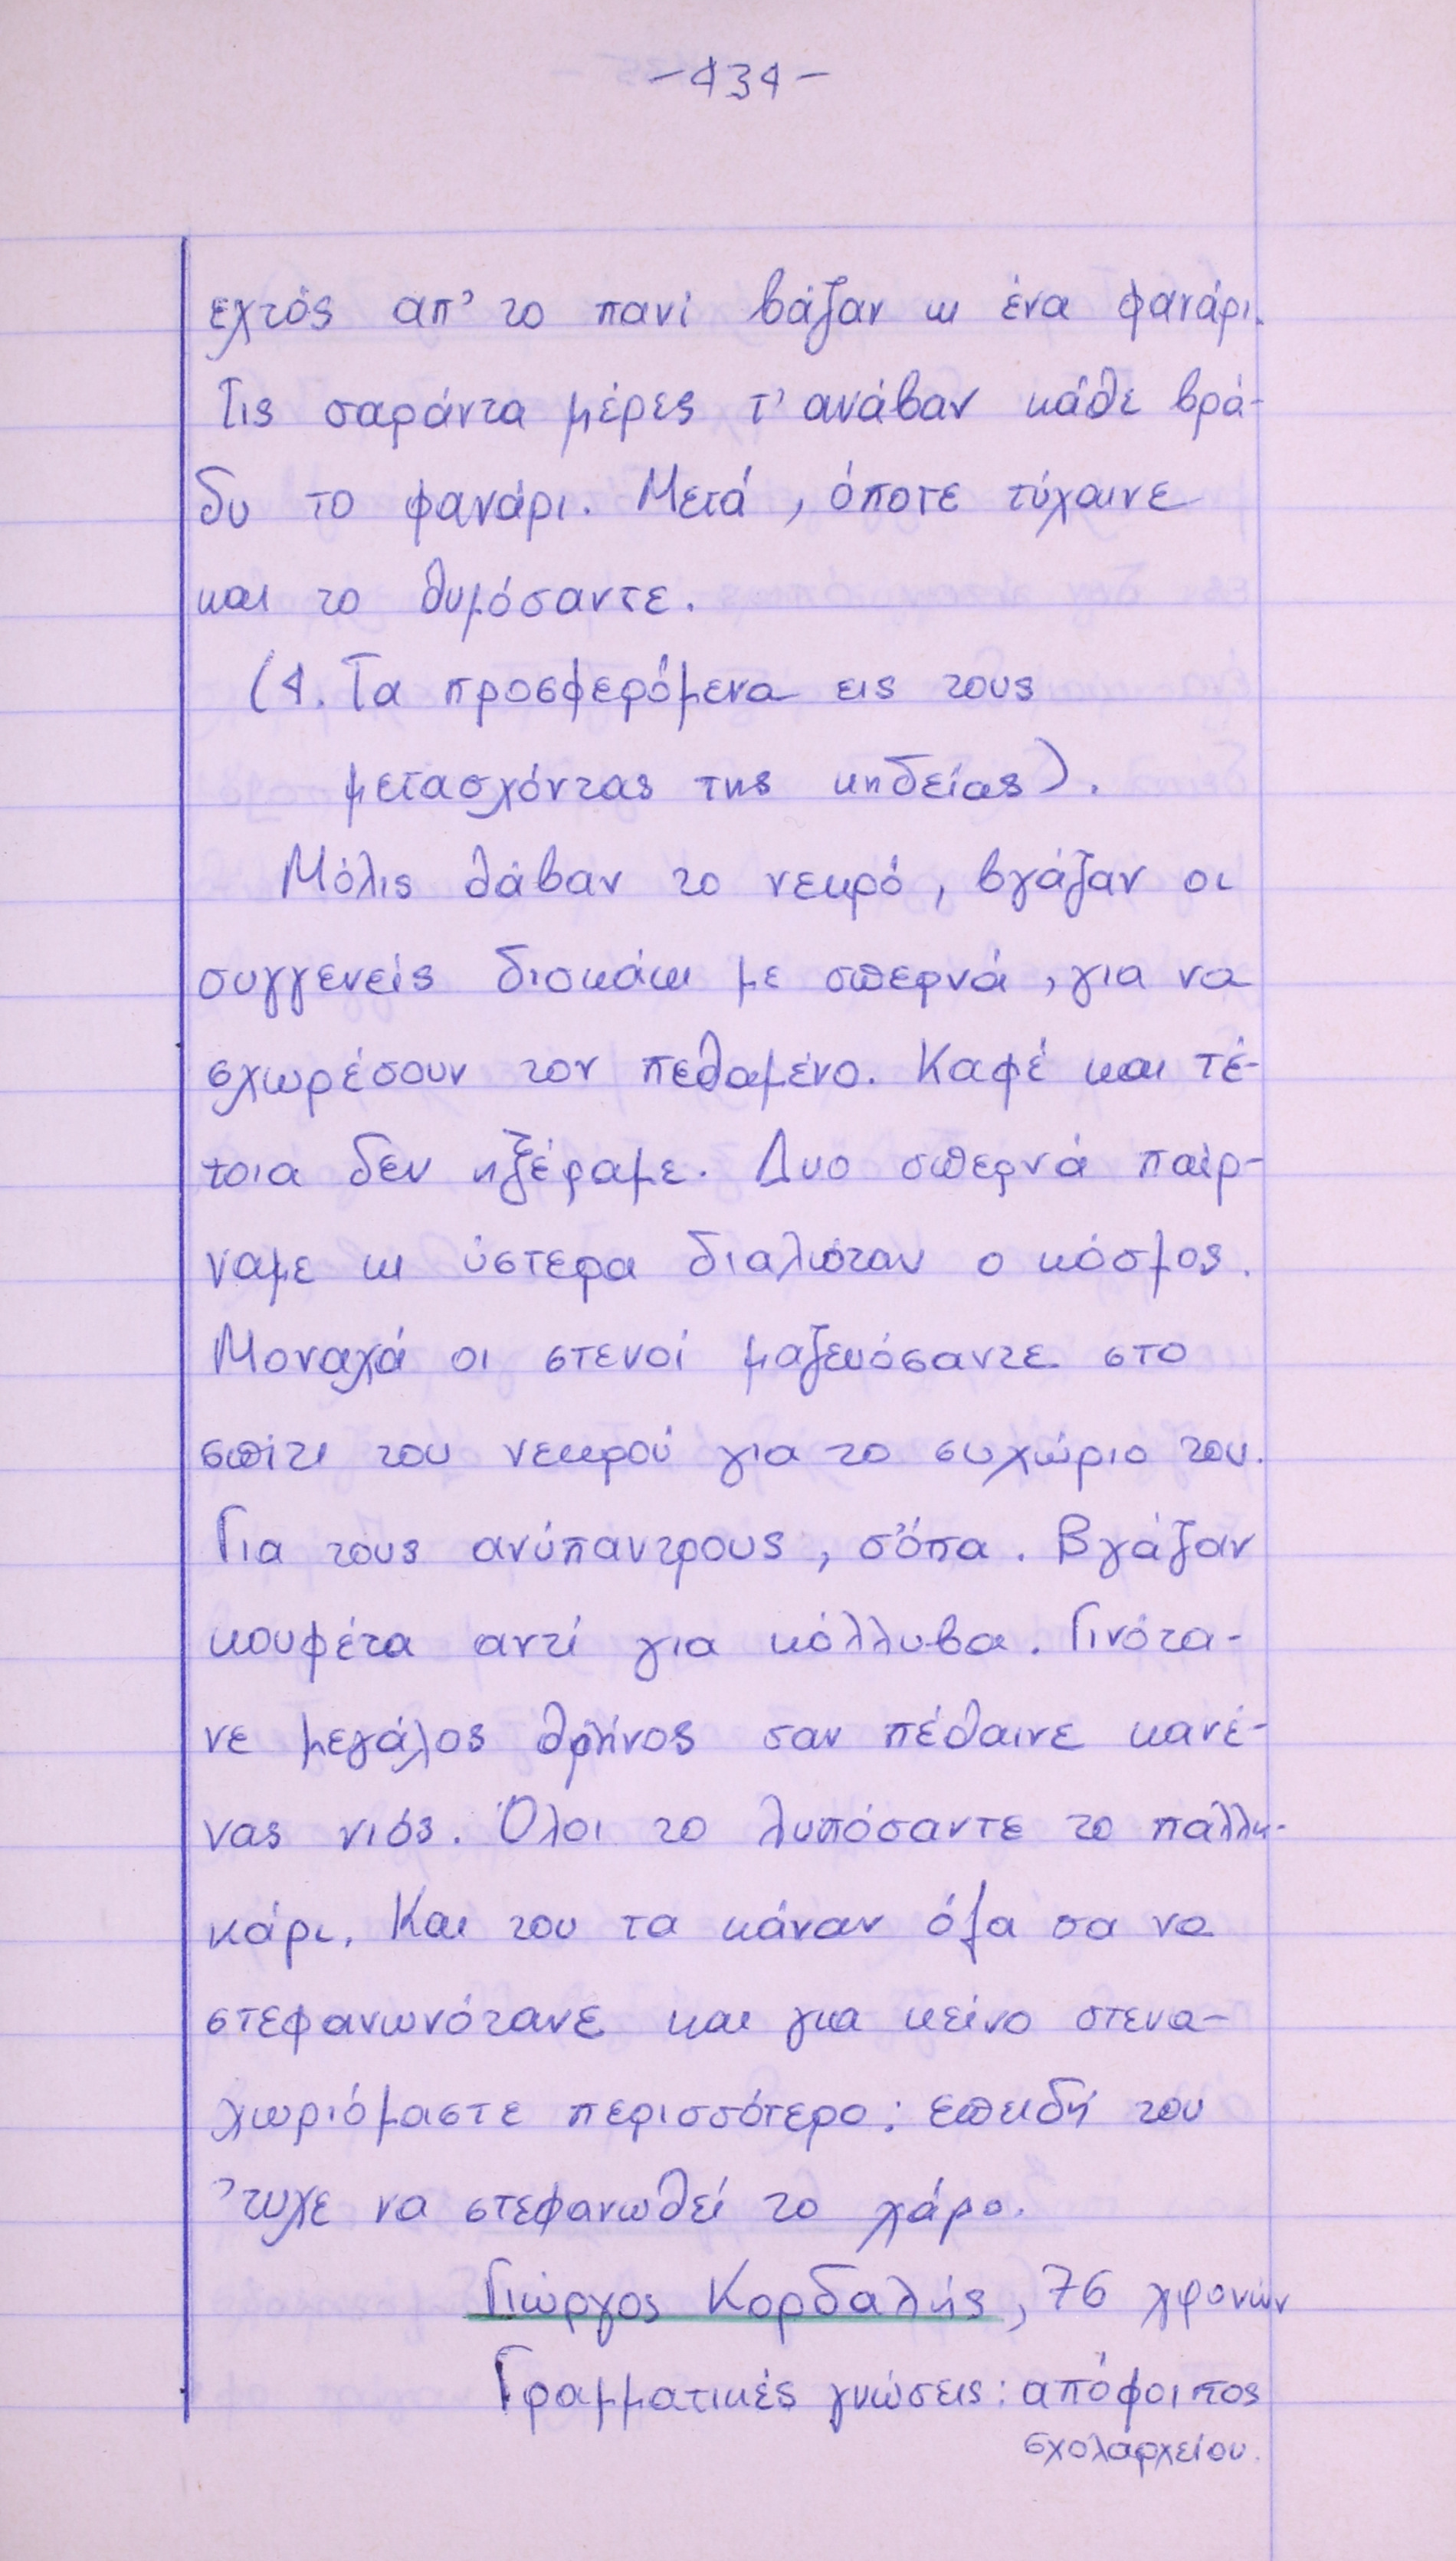 -434-
εχτός απ' το πανί βάζαν κι ένα φανάρι.
Τις σαράντα μέρες τ' ανάβαν κάθε βρά-
δυ το φανάρι. Μετά, όποτε τύχαινε
και το θυμόσαντε.
(4. Τα προσφερόμενα εις τους
μετασχόντας της κηδείας).
Μόλις θάβαν το νεκρό, βγάζαν οι
συγγενείς δισκάκι με σπερνά, για να
σχωρέσουν τον πεθαμένο. Καφέ και τέ-
τοια δεν ηξέραμε. Δυο σπερνά παίρ-
ναμε κι ύστερα διαλιόταν ο κόσμος.
Μοναχά οι στενοί μαζευόσαντε στο
σπίτι του νεκρού για το συχώριο του.
Για τους ανύπαντρους, σ'όπα. Βγάζαν
κουφέτα αντί για κόλλυβα. Γινότα-
νε μεγάλος θρήνος σαν πέθαινε κανέ-
νας νιός. Όλοι το λυπόσαντε το παλλη-
κάρι. Και του τα κάναν όλα σα να
στεφανωνότανε και για κείνο στενα-
χωριόμαστε περισσότερο: επειδή του
'τυχε να στεφανωθεί το χάρο.
Γιώργος Κορδαλής, 76 χρονών
Γραμματικές γνώσεις: απόφοιτος
σχολαρχείου.